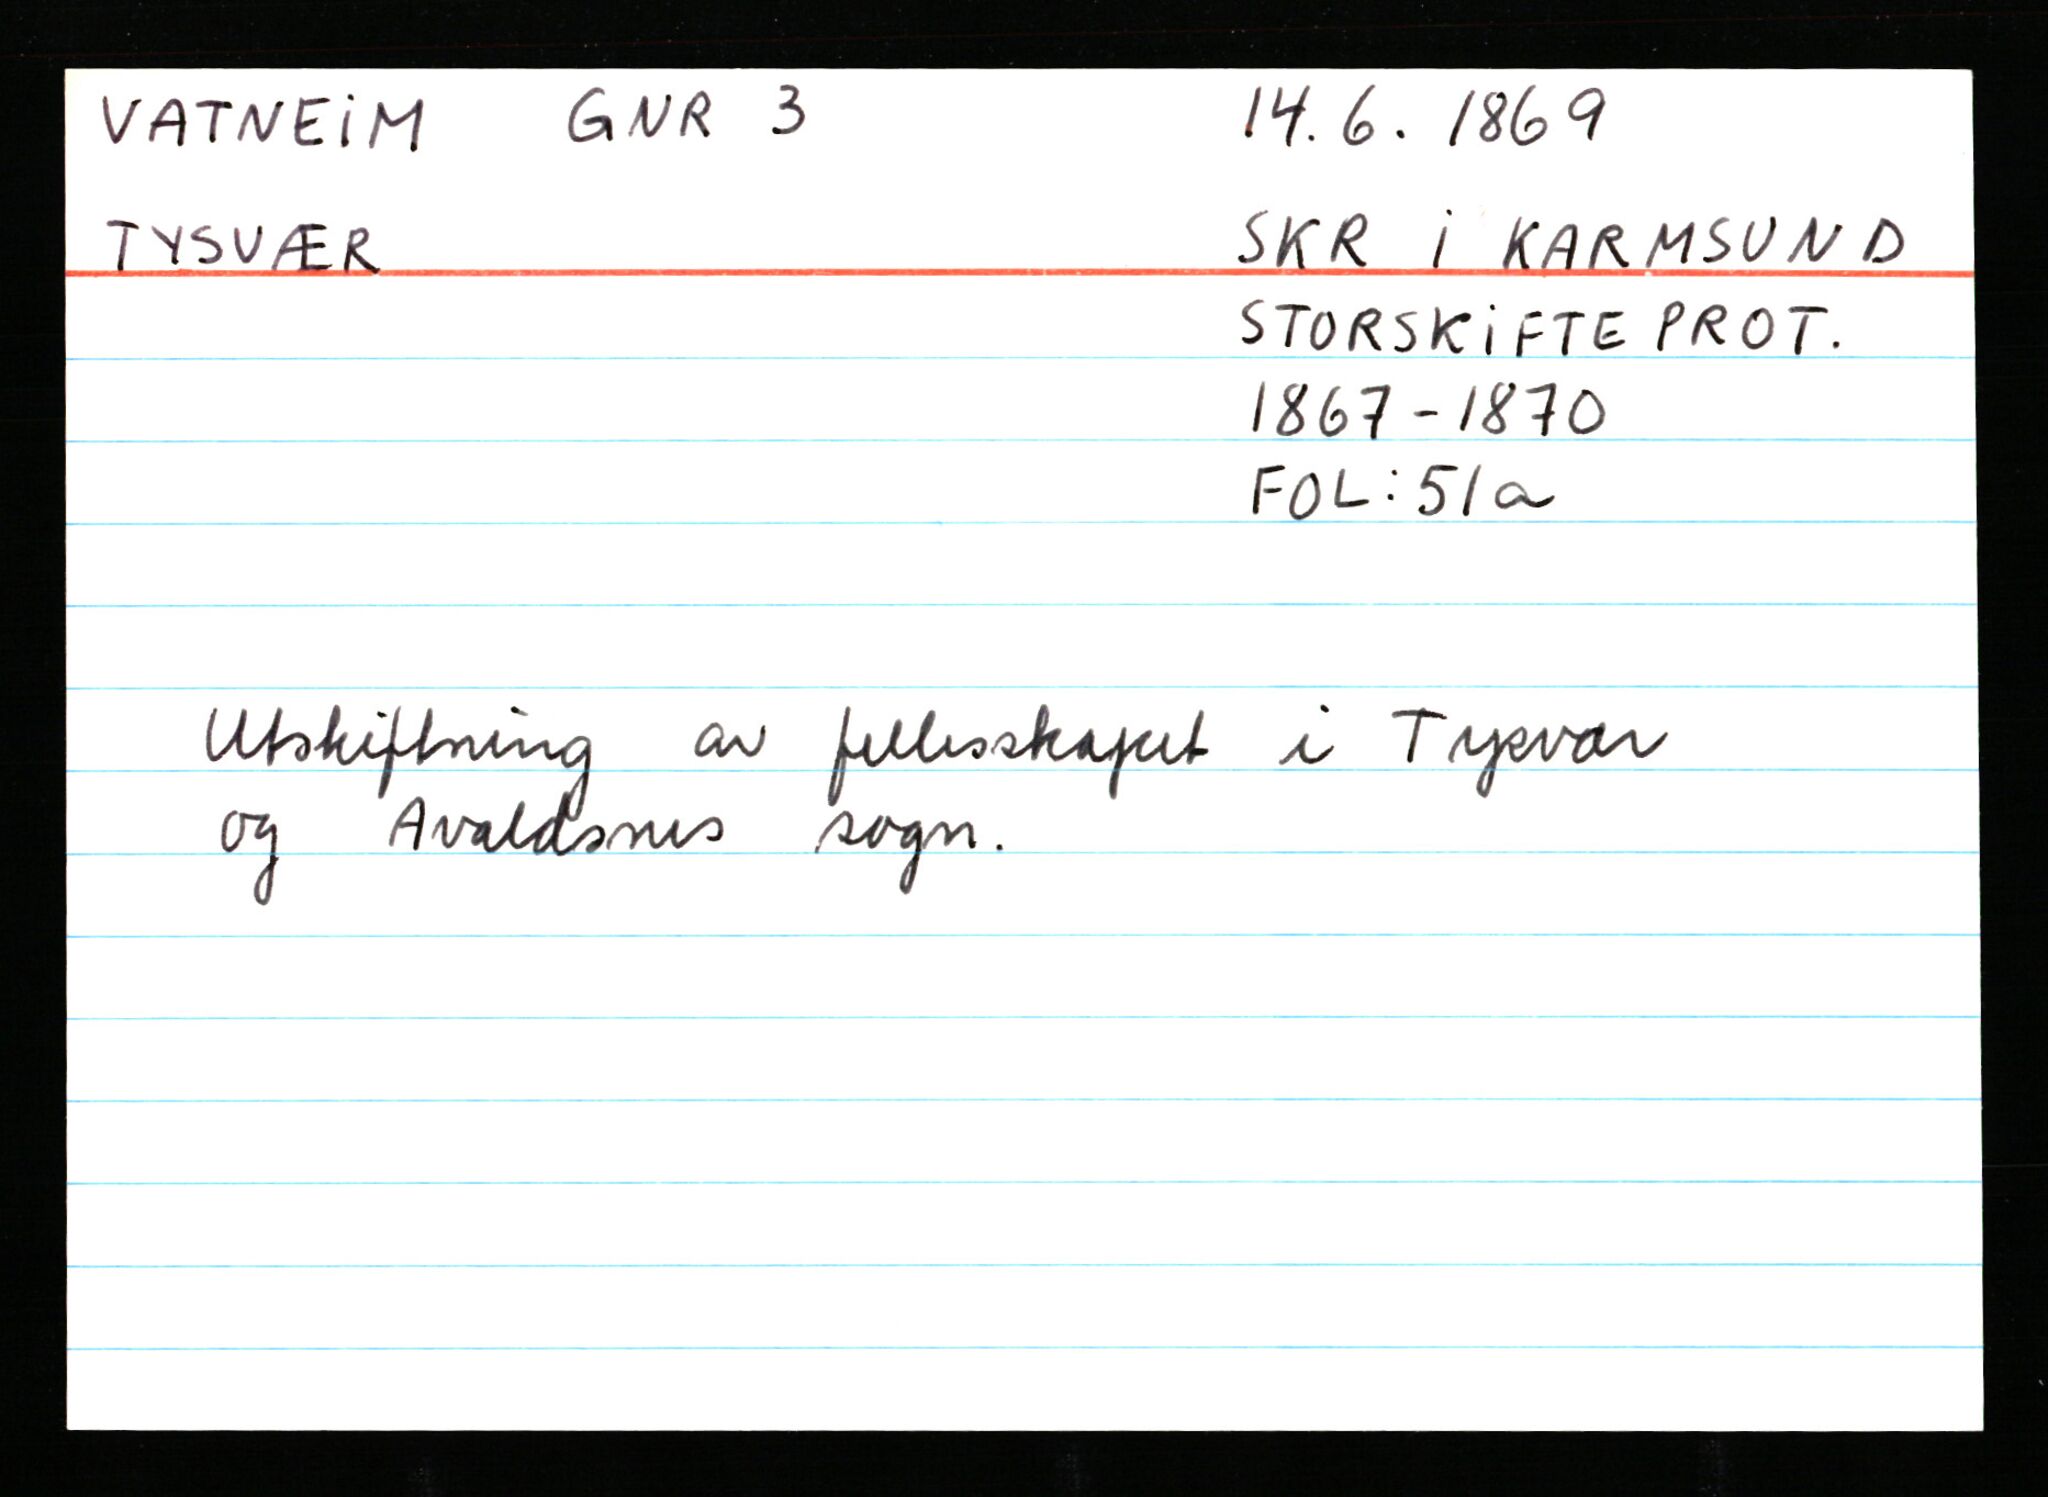 VATNEIM GNR 3 14.6.1869
TYSVÆR SKR I KARMSUND
STORSKIFTEPROT.
1867-1870
FOL: 51a
Utskiftning av fellesskapet i Tysvær
og Avaldsnes sogn.